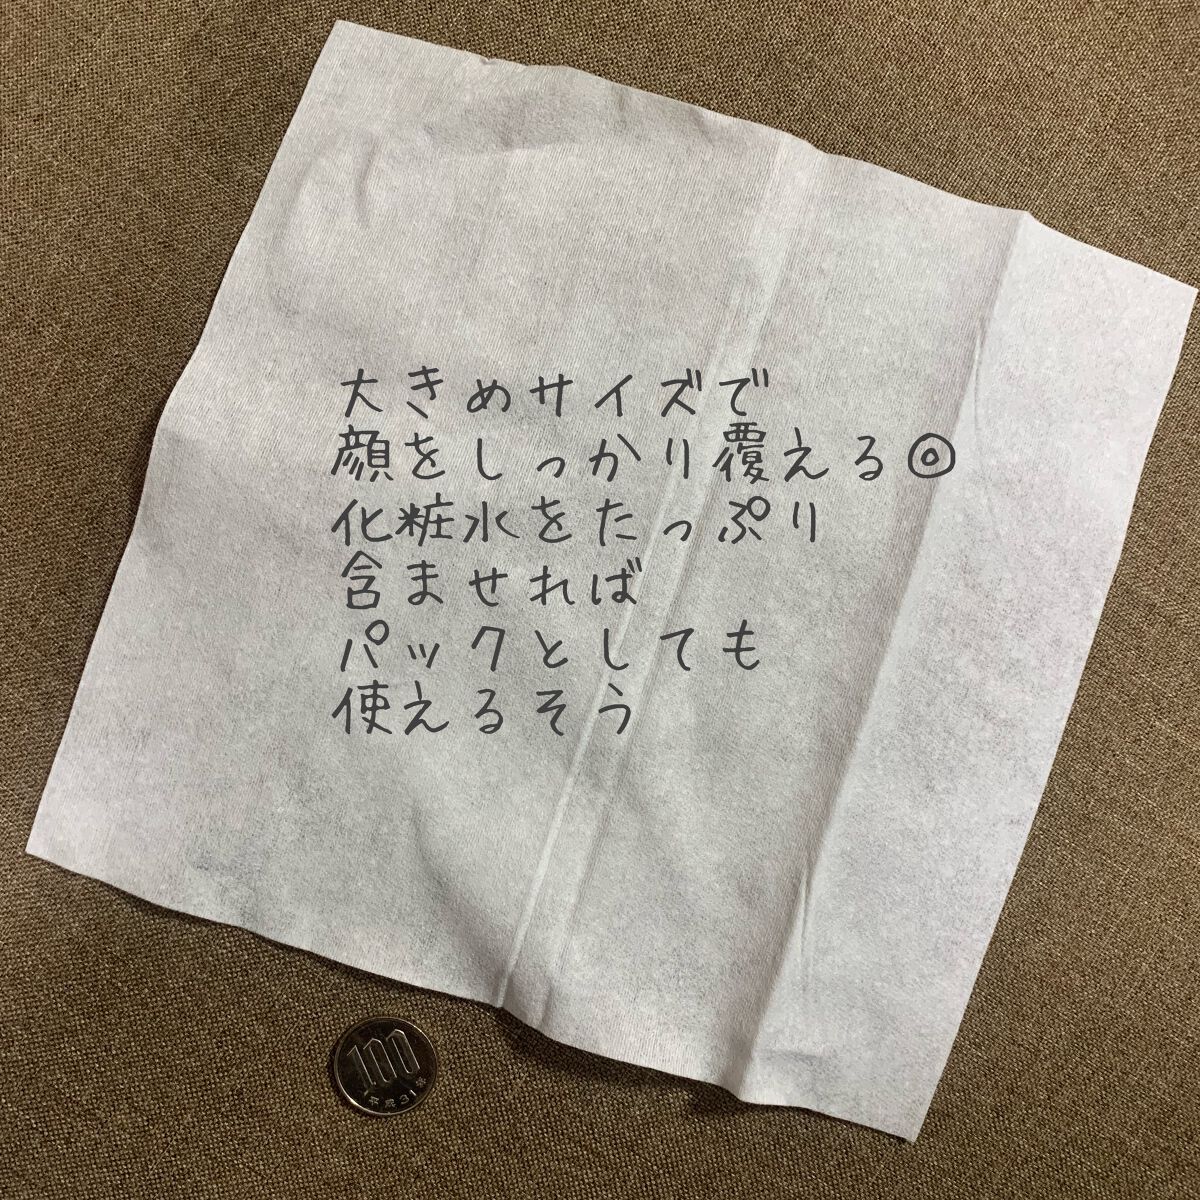 大きめサイズで
顔をしっかり覆える◎
化粧水をたっぷり
含ませれば
パックとしても
使えるそう
100
平成31年